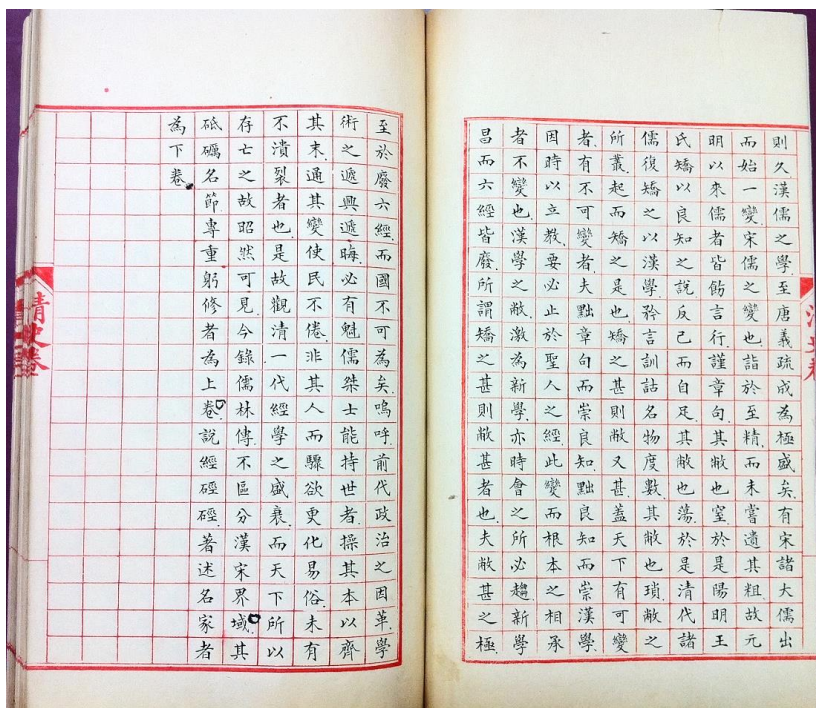 則久漢儒之學至唐義疏成為極盛矣有宋諸大儒出
而始一變宋儒之變也詣於至精而未嘗遺其粗故元
明以來儒者皆飭言行謹章句其敝也窒於是陽明王
氏矯以良知之說反己而自足其敝也蕩於是清代諸
儒復矯之以漢學矜言訓詁名物度數其敝也瑣敝之
所叢起而矯之是也矯之甚則敝又甚蓋天下有可變
者有不可變者夫黜章句而崇良知黜良知而崇漢學
因時以立教要必止於聖人之經此變而根本之相承
者不變也漢學之敝激為新學亦時會之所必趨新學
昌而六經皆廢所謂矯之甚則敝甚者也夫敝甚之極
至於廢六經而國不可為矣嗚呼前代政治之因革學
術之遞興遞晦必有魁儒桀士能持世者操其本以齊
其末通其變使民不倦非其人而驟欲更化易俗未有
不潰裂者也是故觀清一代經學之盛衰而天下所以
存亡之故昭然可見今錄儒林傳不區分漢宋界域其
砥礪名節專重躬修者為上卷說經硜硜著述名家者
為下卷
清史卷